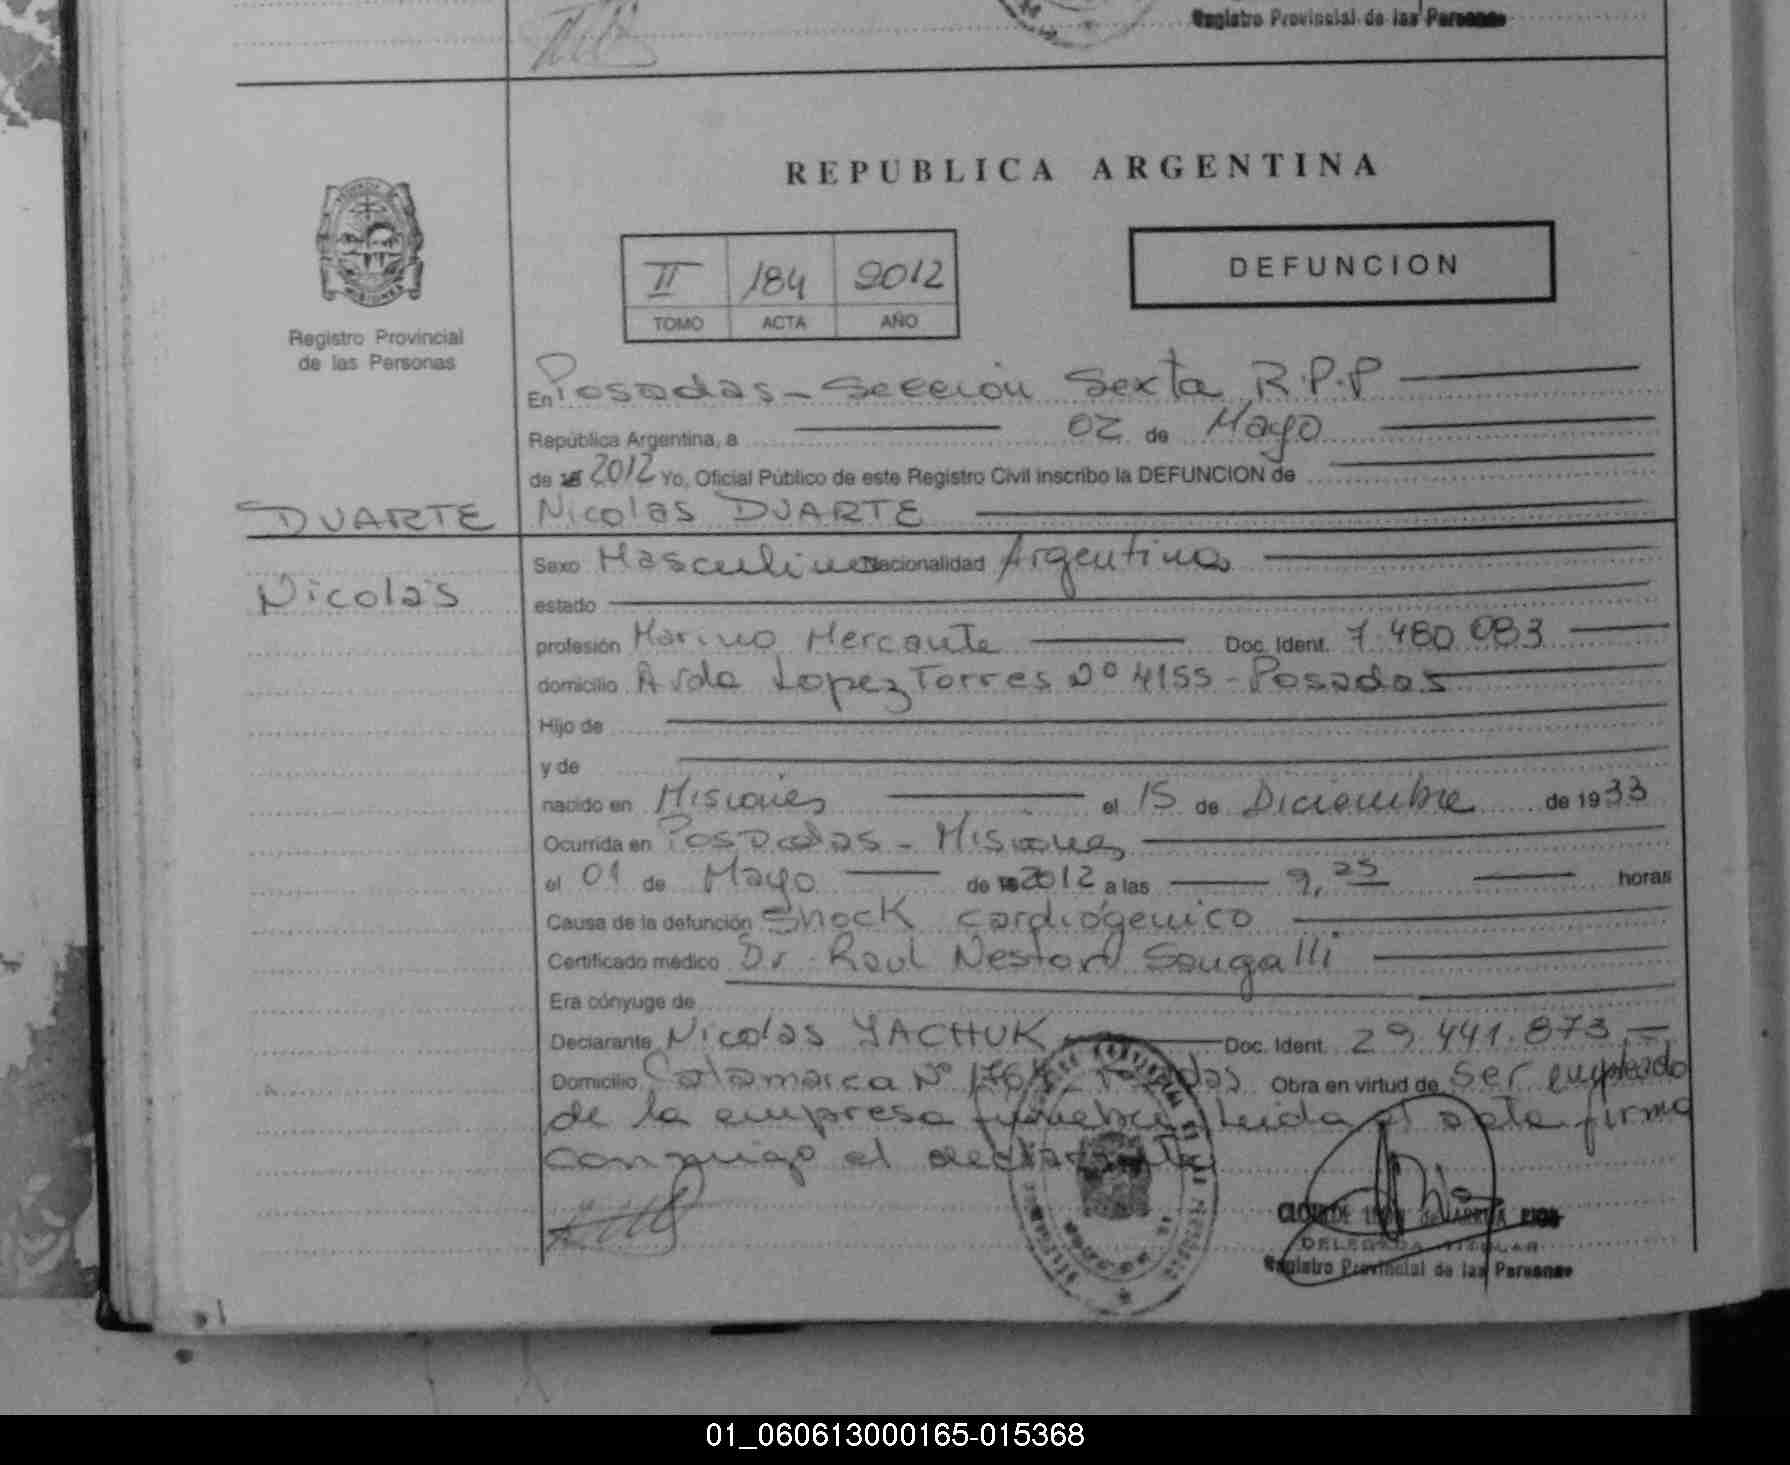 Registro Provincial de las Personas
REPUBLICA ARGENTINA
MISIONES
Registro Provincial
de las Personas
II 184 2012
TOMO ACTA AÑO
DEFUNCION
En Posadas - Sección Sexta R.P.P
República Argentina, a 02 de Mayo
de 2012 Yo, Oficial Público de este Registro Civil inscribo la DEFUNCION de
DUARTE Nicolas DUARTE
Sexo Masculino Nacionalidad Argentina
Nicolas
estado
profesión Marino Mercante Doc. Ident. 7.480.083
domicilio Avda Lopez Torres Nº 4155 - Posadas
Hijo de
y de
nacido en Misiones el 15 de Diciembre de 1933
Ocurrida en Posadas - Misiones
el 01 de Mayo de 2012 a las 9,25 horas
Causa de la defunción Shock cardiógenico
Certificado médico Dr. Raul Nestor Sougalli
Era cónyuge de
Declarante Nicolas YACHUK Doc. Ident. 29.441.873
Domicilio Catamarca Nº Posadas Obra en virtud de ser empleado
de la empresa funebre leida el acta firma
conmigo el declarante
DELEGADA TITULAR
Registro Provincial de las Personas
01_060613000165-015368